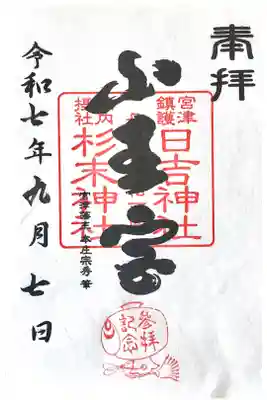 奉拝
宮津
鎮護
日吉神社
境内
摂社
杉末神社
山王宮
宮津藩主 本庄宗秀 筆
令和七年九月七日
參拝
記念